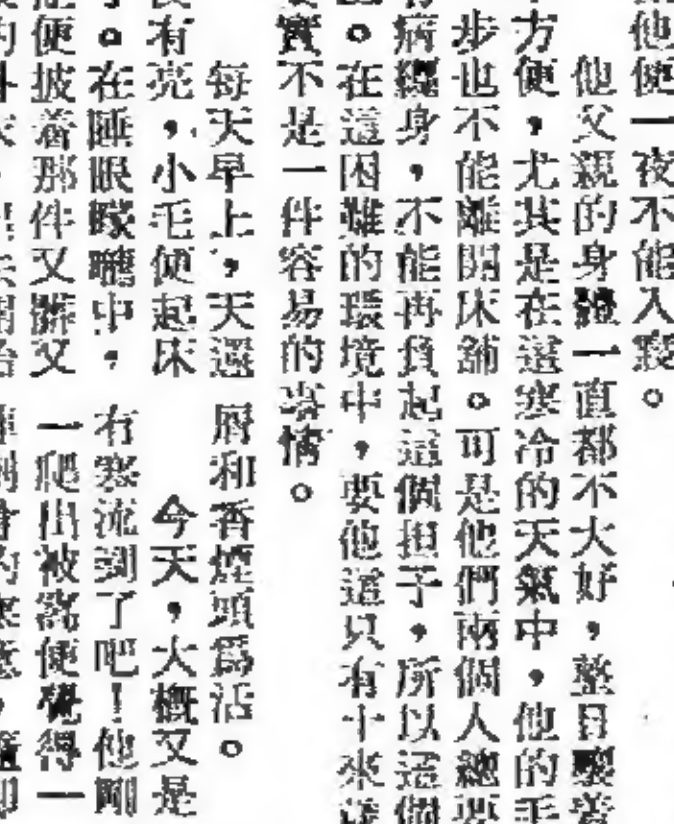 他便一夜不能入寢。
他父親的身體一直都不大好，整日嚷着
方便，尤其是在這寒冷的天氣中，他的毛
步也不能離開床舖。可是他們兩個人總要
病纏身，不能再負起這個担子，所以這個
。在這困難的環境中，要他這只有十來歲
實不是一件容易的事情。
每天早上，天還
有亮，小毛便起床
。在睡眼矇矓中，
便披着那件又髒又
屑和香煙頭爲活。
今天，大概又是
有寒流到了吧！他剛
一爬出被窩便覺得一